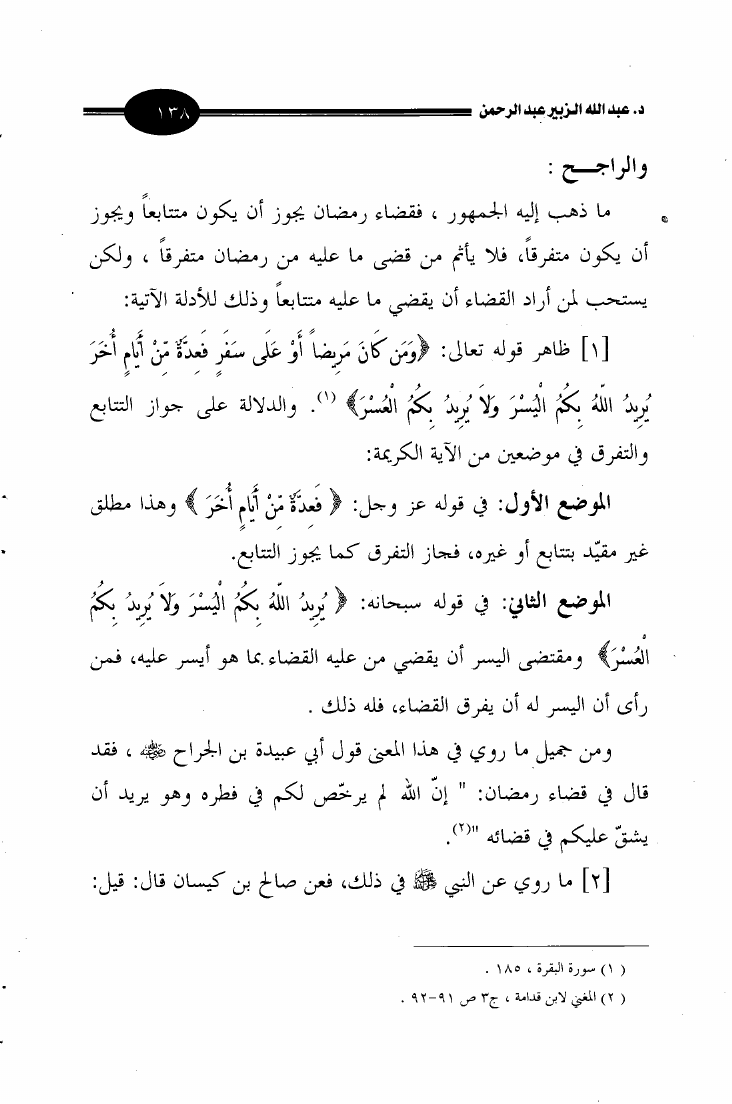 د. عبد الله الزبير عبد الرحمن ١٣٨
والراجـــح :
ما ذهب إليه الجمهور ، فقضاء رمضان يجوز أن يكون متتابعاً ويجوز
أن يكون متفرقاً، فلا يأثم من قضى ما عليه من رمضان متفرقاً ، ولكن
يستحب لمن أراد القضاء أن يقضي ما عليه متتابعاً وذلك للأدلة الآتية:
[١] ظاهر قوله تعالى: ﴿وَمَن كَانَ مَرِيضاً أَوْ عَلَى سَفَرٍ فَعِدَّةٌ مِّنْ أَيَّامٍ أُخَرَ
يُرِيدُ اللّهُ بِكُمُ الْيُسْرَ وَلاَ يُرِيدُ بِكُمُ الْعُسْرَ﴾ (١). والدلالة على جواز التتابع
والتفرق في موضعين من الآية الكريمة:
الموضع الأول: في قوله عز وجل: ﴿ فَعِدَّةٌ مِّنْ أَيَّامٍ أُخَرَ ﴾ وهذا مطلق
غير مقيّد بتتابع أو غيره، فجاز التفرق كما يجوز التتابع.
الموضع الثاني: في قوله سبحانه: ﴿ يُرِيدُ اللّهُ بِكُمُ الْيُسْرَ وَلاَ يُرِيدُ بِكُمُ
الْعُسْرَ﴾ ومقتضى اليسر أن يقضي من عليه القضاء بما هو أيسر عليه، فمن
رأى أن اليسر له أن يفرق القضاء، فله ذلك .
ومن جميل ما روي في هذا المعنى قول أبي عبيدة بن الجراح رضي الله عنه ، فقد
قال في قضاء رمضان: " إنّ الله لم يرخّص لكم في فطره وهو يريد أن
يشقّ عليكم في قضائه "(٢).
[٢] ما روي عن النبي ﷺ في ذلك، فعن صالح بن كيسان قال: قيل:
(١) سورة البقرة ، ١٨٥ .
(٢) المغني لابن قدامة ، ج٣ ص ٩١-٩٢ .